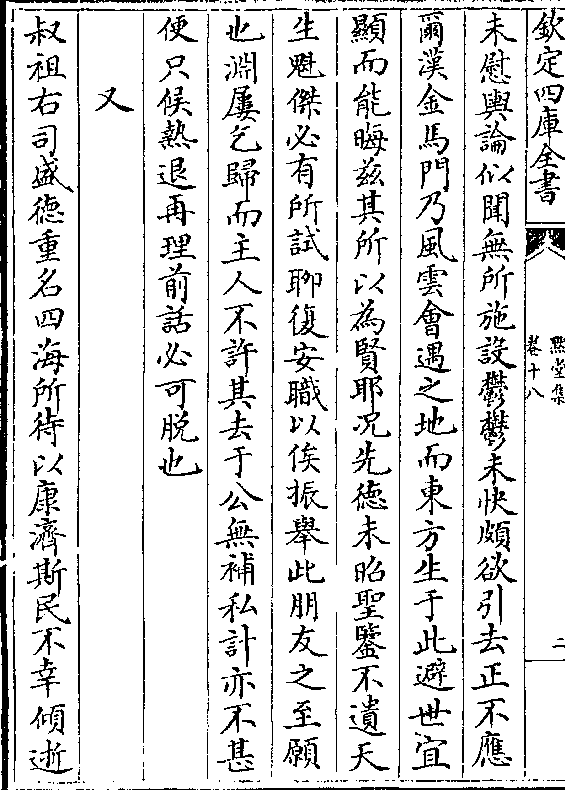 欽定四庫全書
默堂集
卷十八
二
未慰輿論似聞無所施設鬱鬱未快頗欲引去正不應
爾漢金馬門乃風雲會遇之地而東方生于此避世宜
顯而能晦兹其所以為賢耶况先德未昭聖鑒不遺天
生魁傑必有所試聊復安職以俟振舉此朋友之至願
也淵屢乞歸而主人不許其去于公無補私計亦不甚
便只候熱退再理前話必可脱也
又
叔祖右司盛德重名四海所待以康濟斯民不幸傾逝